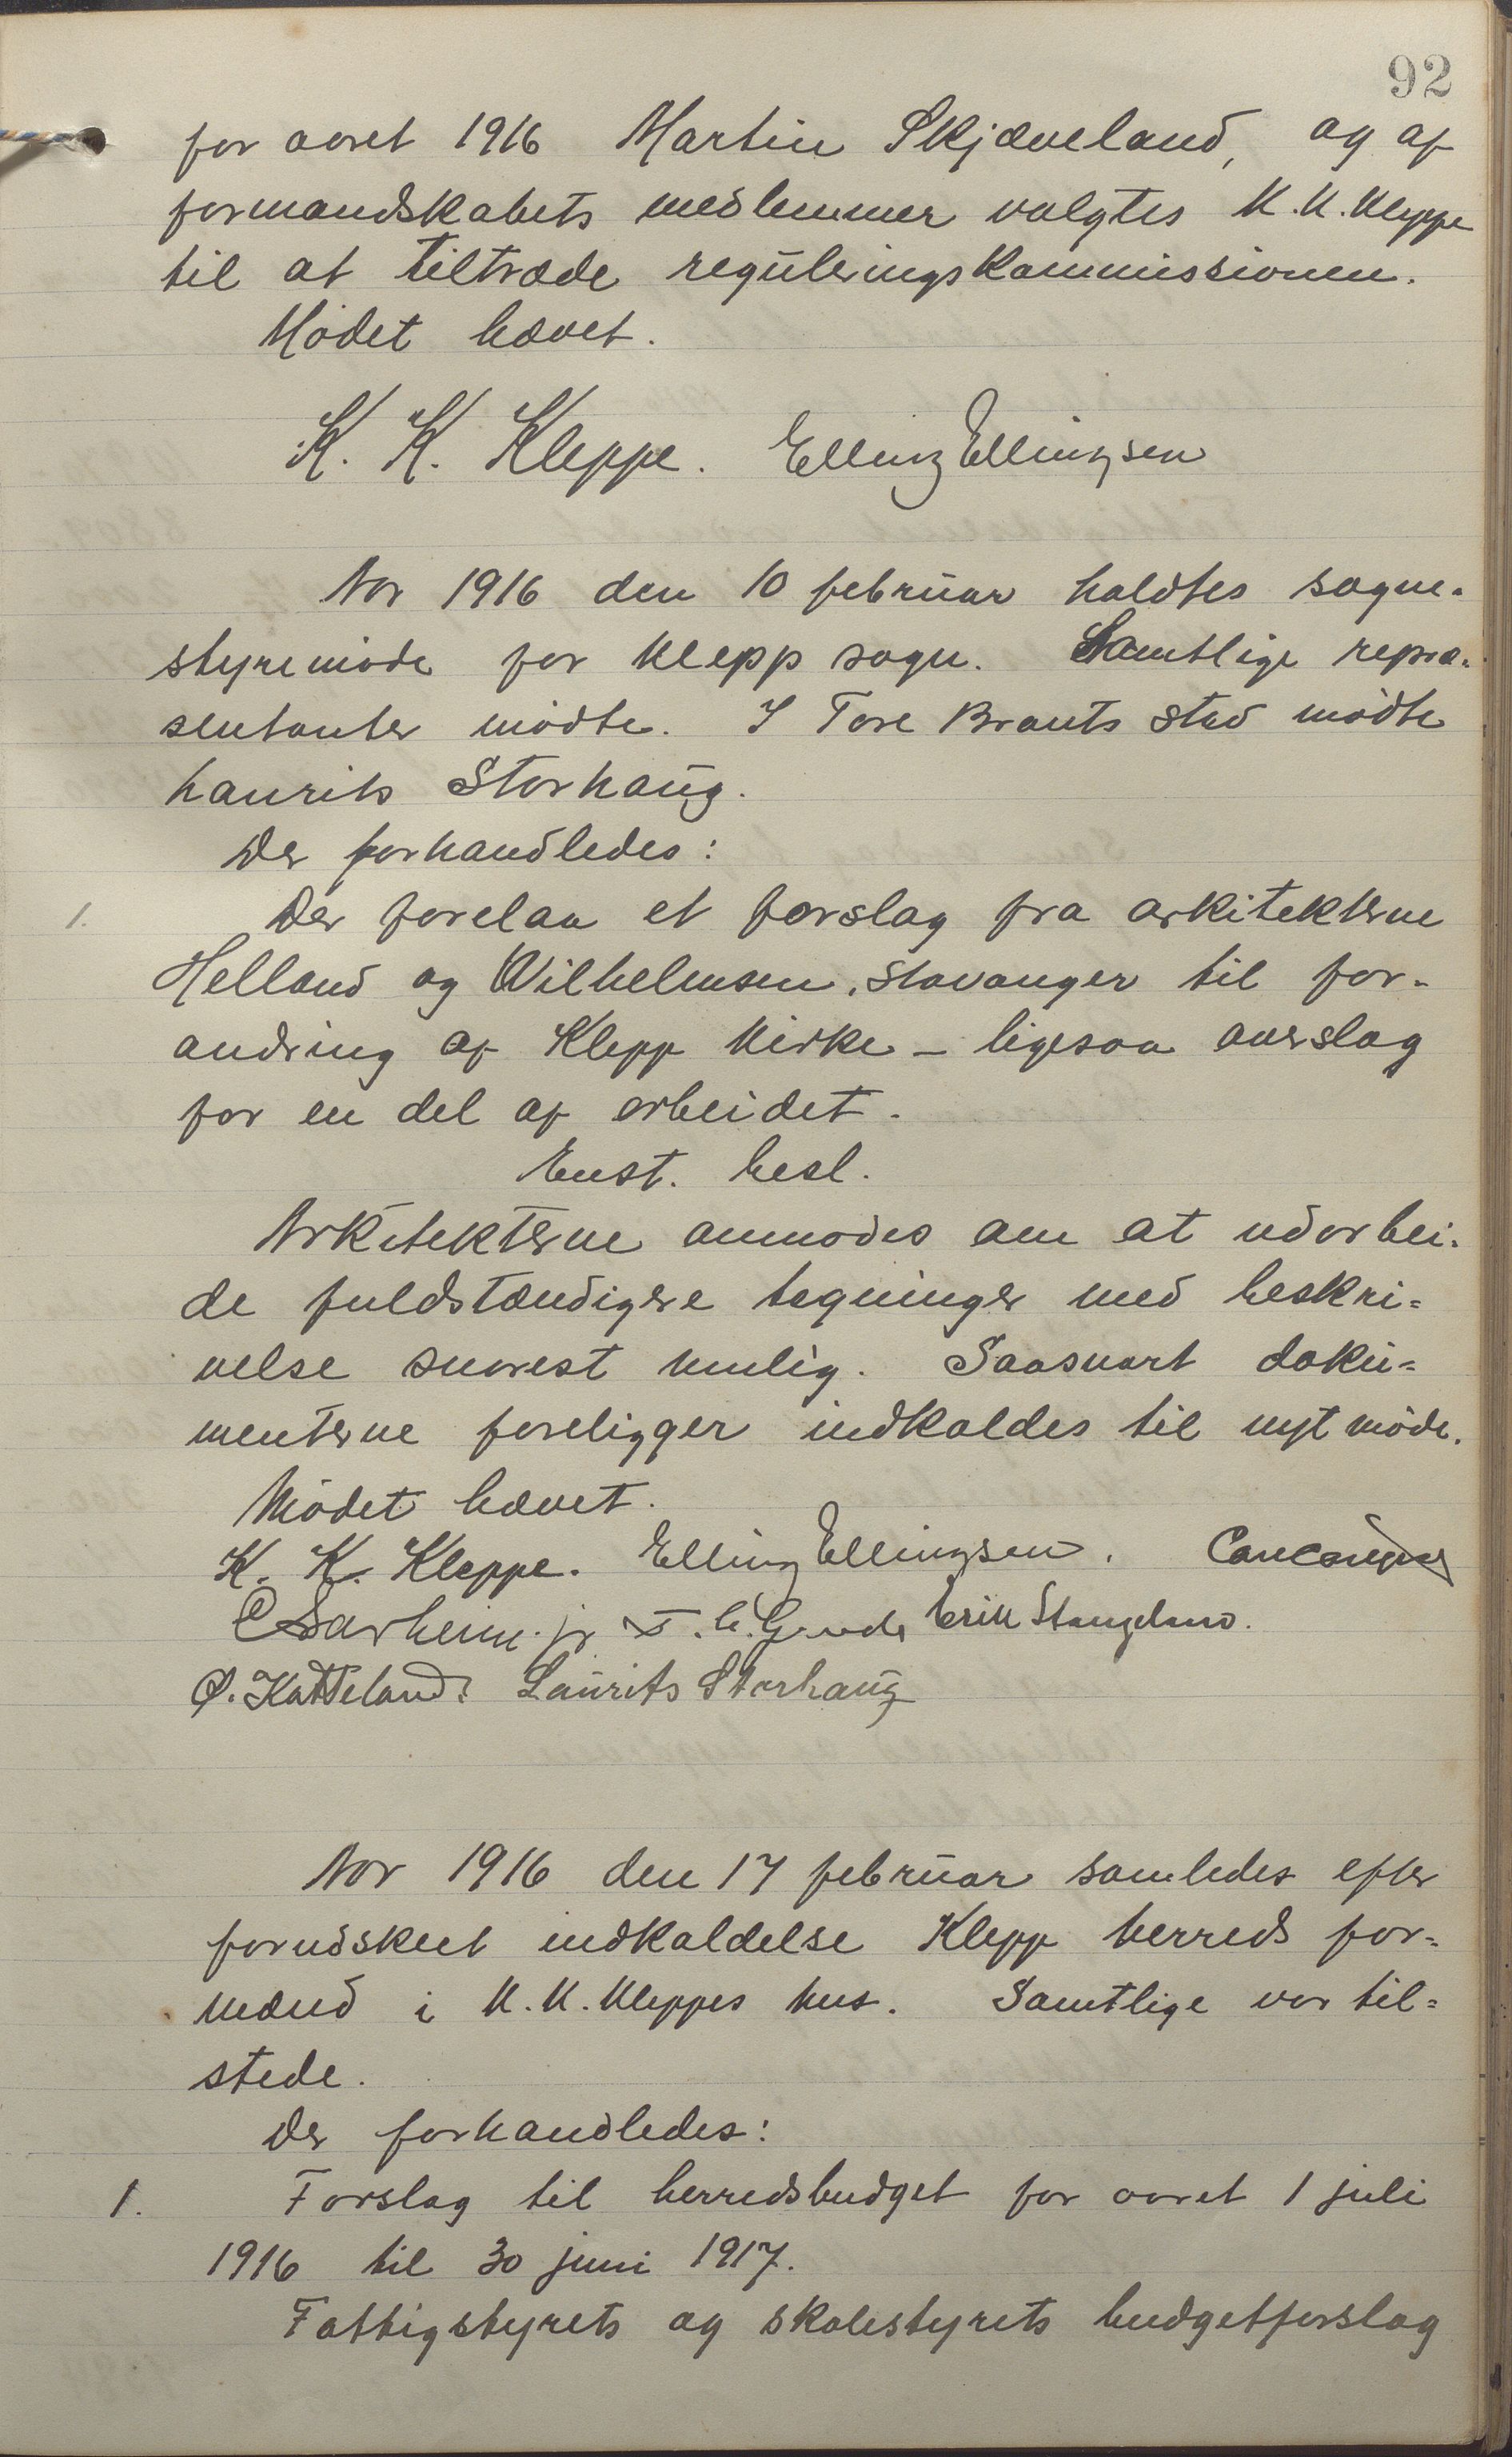 92
for aaret 1916 Martin Skjæveland, og af
formandskabets medlemmer valgtes K. K. Kleppe
til at tiltræde reguleringskommissionen.
Mødet hævet.
K. K. Kleppe. Elling Ellingsen
Aar 1916 den 10 februar holdtes sogne-
styremøde for Klepp sogn. Samtlige repræ-
sentanter mødte. I Tore Brauts sted mødte
Laurits Storhaug.
Der forhandledes:
1. Der forelaa et forslag fra arkitekterne
Helland og Wilhelmsen, Stavanger til for-
andring af Klepp kirke – ligesaa overslag
for en del af arbeidet.
Enst. besl.
Arkitekterne anmodes om at udarbei-
de fuldstændigere tegninger med beskri-
velse snarest mulig. Saasnart doku-
menterne foreligger indkaldes til nyt møde.
Mødet hævet.
K. K. Kleppe. Elling Ellingsen.
Erik Stangeland.
O. Katteland. Laurits Storhaug
Aar 1916 den 17 februar samledes efter
forudskeet indkaldelse Klepp herreds for-
mænd i K. K. Kleppes hus. Samtlige var til-
stede.
Der forhandledes:
1. Forslag til herredsbudget for aaret 1 juli
1916 til 30 juni 1917.
Fattigstyrets og skolestyrets budgetforslag